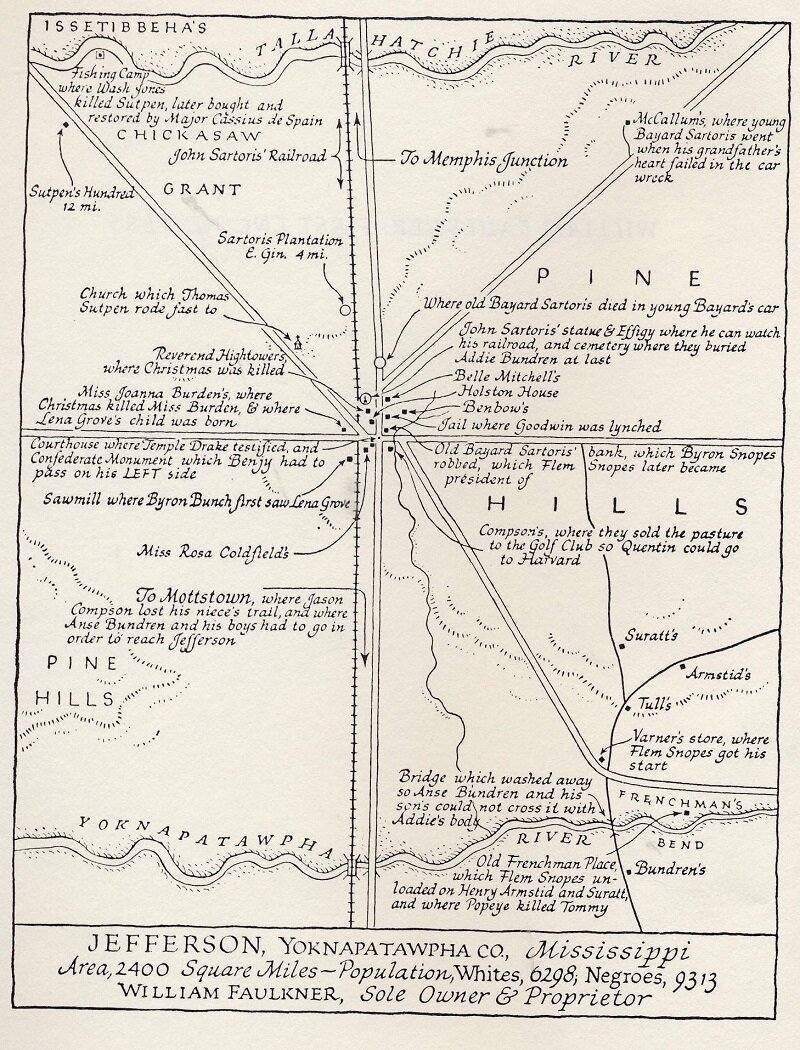 ISSETIBBEHA'S
TALLAHATCHIE
RIVER
Fishing Camp
where Wash Jones
killed Sutpen, later bought and
restored by Major Cassius de Spain
CHICKASAW
John Sartoris' Railroad
To Memphis Junction
McCallum's, where young
Bayard Sartoris went
when his grandfather's
heart failed in the car
wreck
Sutpen's Hundred
12 mi.
GRANT
Sartoris Plantation
E. Gin. 4 mi.
PINE
Church which Thomas
Sutpen rode fast to
Where old Bayard Sartoris died in young Bayard's car
John Sartoris' statue & Effigy where he can watch
his railroad, and cemetery where they buried
Addie Bundren at last
Reverend Hightower's,
where Christmas was killed
Belle Mitchell's
Holston House
Benbow's
Jail where Goodwin was lynched
Miss Joanna Burden's, where
Christmas killed Miss Burden, & where
Lena Grove's child was born
Courthouse where Temple Drake testified, and
Confederate Monument which Benjy had to
pass on his LEFT side
Old Bayard Sartoris' bank, which Byron Snopes
robbed, which Flem Snopes later became
president of
Sawmill where Byron Bunch first saw Lena Grove
HILLS
Miss Rosa Coldfield's
Compson's, where they sold the pasture
to the Golf Club so Quentin could go
to Harvard
To Mottstown, where Jason
Compson lost his niece's trail, and where
Anse Bundren and his boys had to go in
order to reach Jefferson
PINE
HILLS
Suratt's
Armstid's
Tull's
Varner's store, where
Flem Snopes got his
start
Bridge which washed away
so Anse Bundren and his
sons could not cross it with
Addie's body
FRENCHMAN'S
BEND
YOKNAPATAWPHA
RIVER
Old Frenchman Place,
which Flem Snopes un-
loaded on Henry Armstid and Suratt,
and where Popeye killed Tommy
Bundren's
JEFFERSON, YOKNAPATAWPHA CO., Mississippi
Area, 2400 Square Miles – Population, Whites, 6298; Negroes, 9313
WILLIAM FAULKNER, Sole Owner & Proprietor